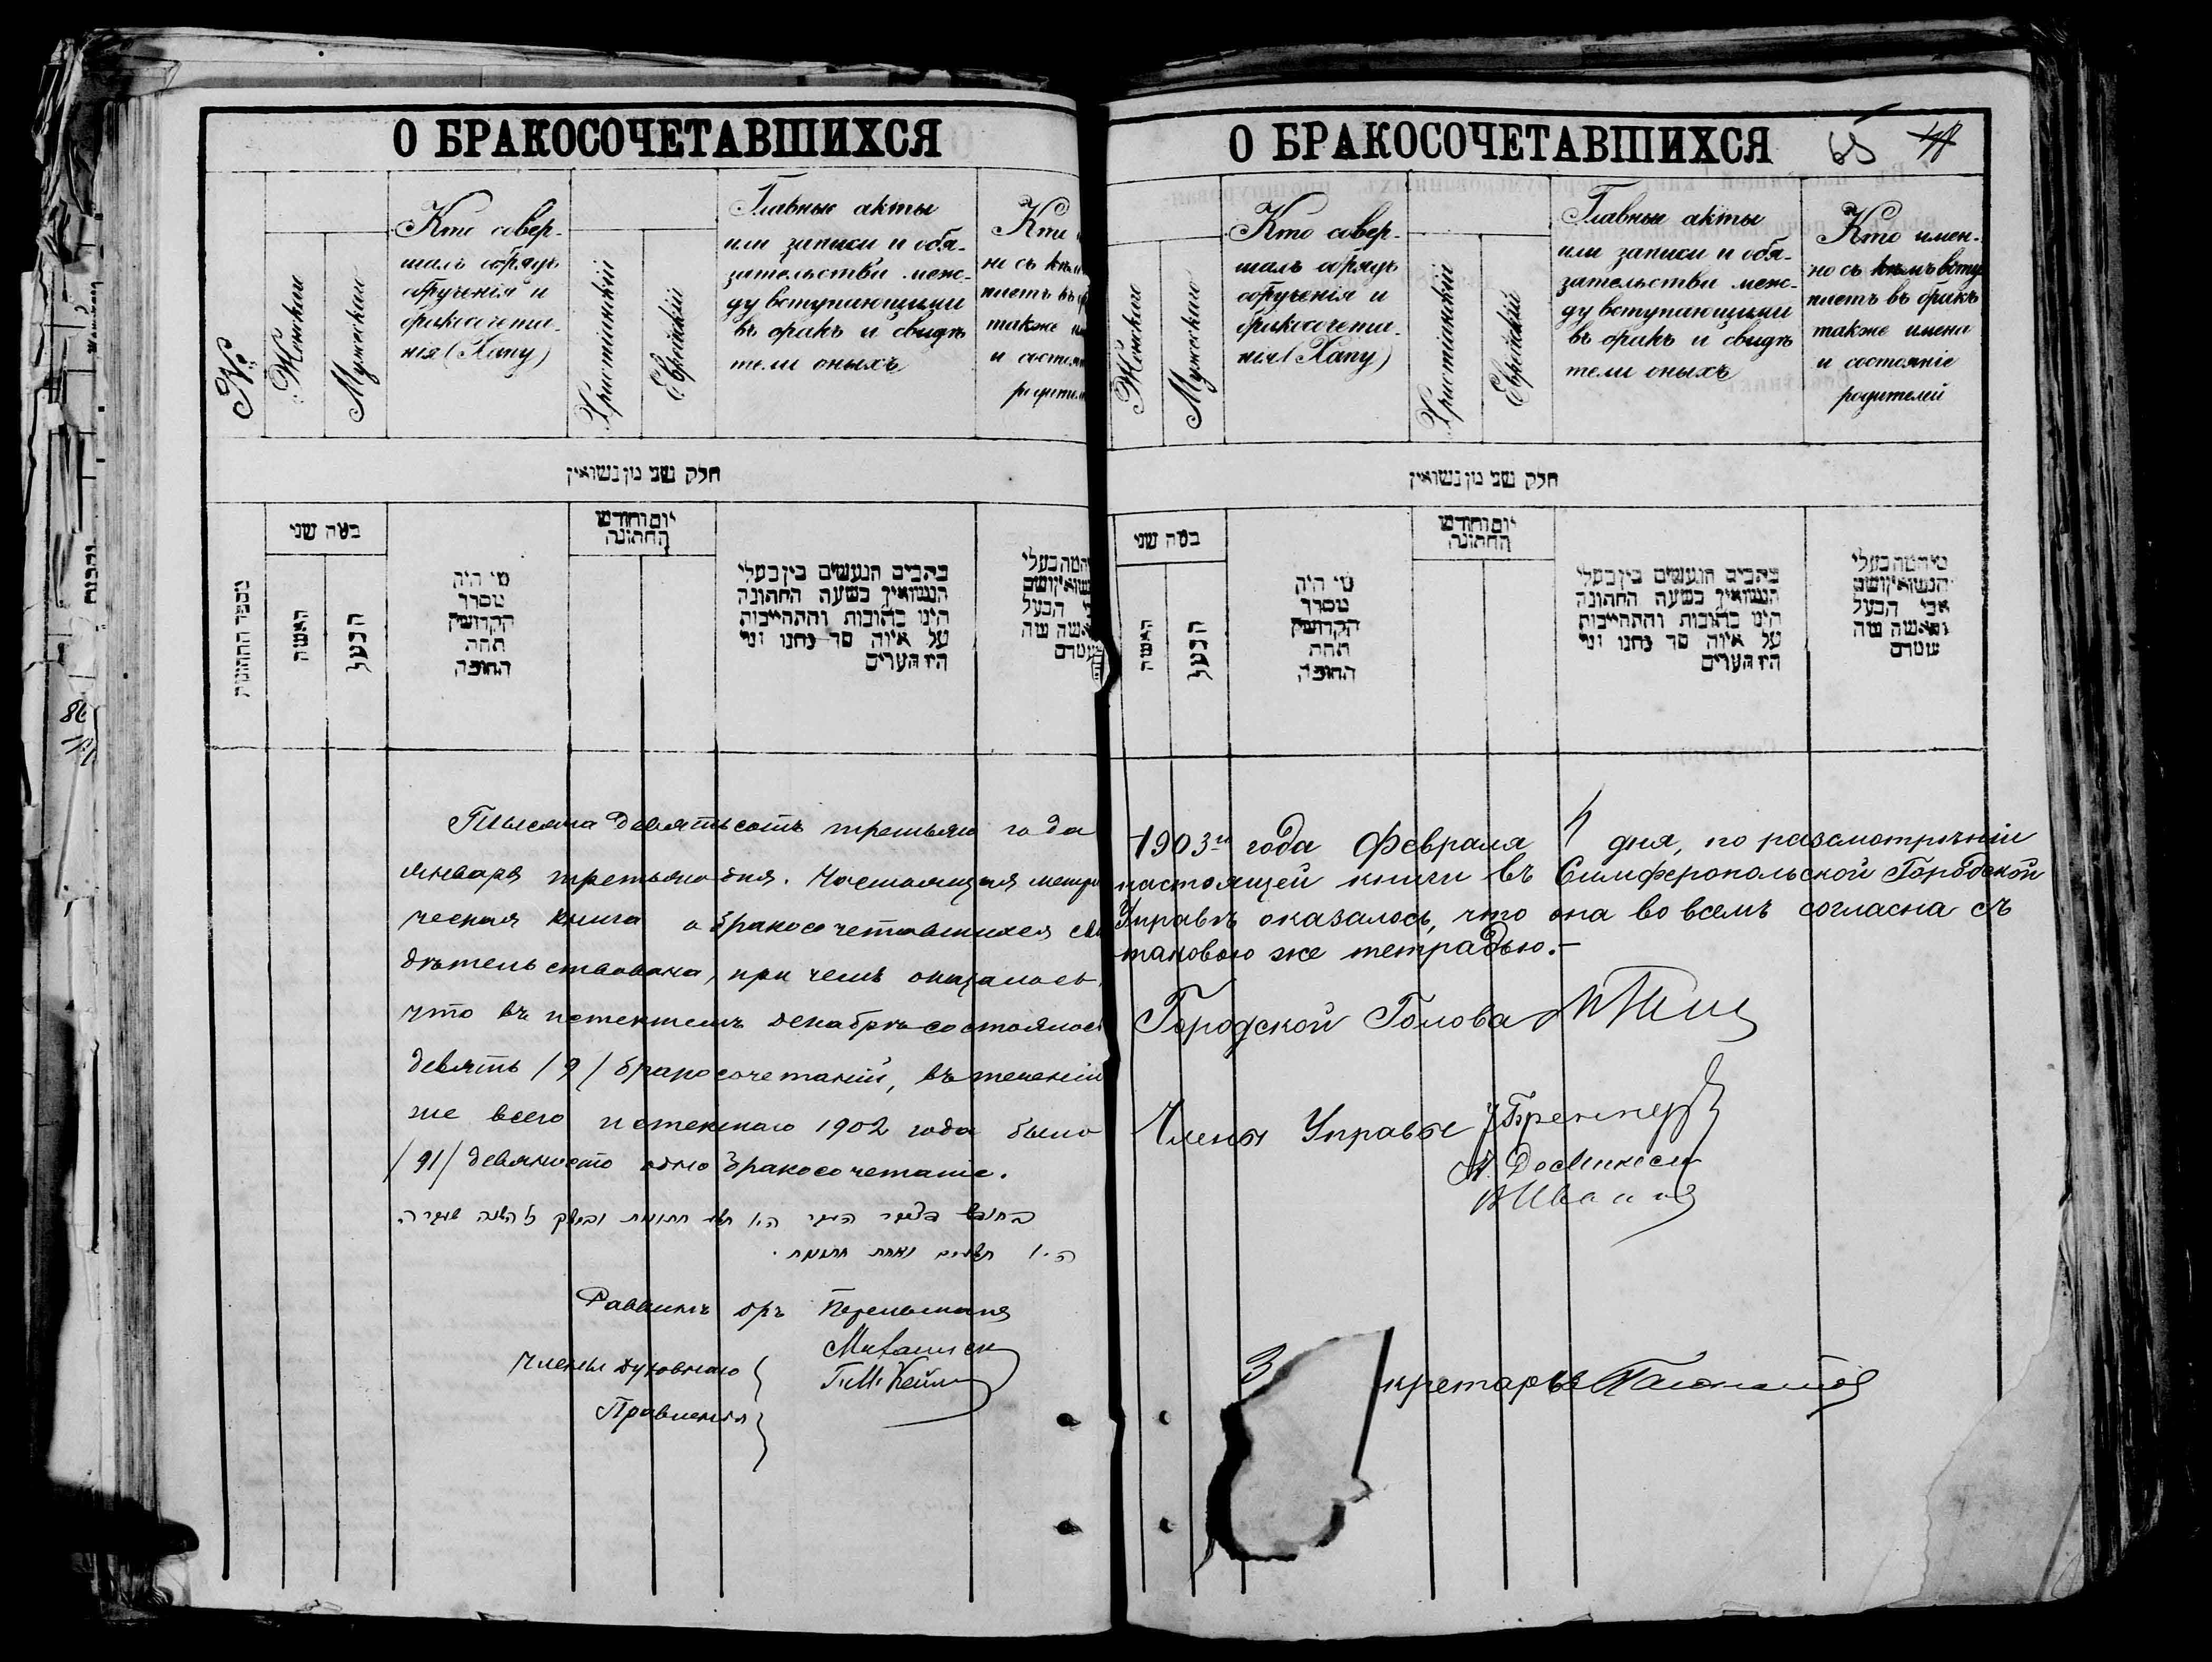 О БРАКОСОЧЕТАВШИХСЯ
№
Женскаго
Мужескаго
Кто совер-
шалъ обрядъ
обрученія и
бракосочета-
нія (Хапу)
Христіанскій
Еврейскій
Главные акты
или записи и обя-
зательства меж-
ду вступающими
въ бракъ и свидѣ
тели оныхъ
Кто
но съ
также
и
חלק שני מן נשואין
מספר החתונות
כמה שני
האשה
הבעל
מי היה
מסדר
הקדושין
תחת
החופה
יום וחודש
החתונה
כתבים הנעשים בין בעלי
הנשואין בשעת החתונה
היינו כתובות והתחייבות
על איזה סך נתנו ומי
היו העדים
Тысяча девятьсотъ третьяго года
января третьяго дня. Настоящая метри
ческая книга о бракосочетавшихся сви
дѣтельствована, при чемъ оказалось
что въ истекшемъ декабрѣ состоялось
девять /9/ бракосочетаній, въ теченіи
же всего истекшаго 1902 года было
/91/ девяносто одно бракосочетаніе.
היו תשעים ואחת חתונות.
Раввинъ дръ Перельманъ
Члены Духовнаго
Правленія
О БРАКОСОЧЕТАВШИХСЯ
65
Женскаго
Мужескаго
Кто совер-
шалъ обрядъ
обрученія и
бракосочета-
нія (Хапу)
Христіанскій
Еврейскій
Главные акты
или записи и обя-
зательства меж-
ду вступающими
въ бракъ и свидѣ
тели оныхъ
Кто имен-
но съ кѣмъ всту
паетъ въ бракъ
также имена
и состояніе
родителей
חלק שני מן נשואין
כמה שני
האשה
הבעל
מי היה
מסדר
הקדושין
תחת
החופה
יום וחודש
החתונה
כתבים הנעשים בין בעלי
הנשואין בשעת החתונה
היינו כתובות והתחייבות
על איזה סך נתנו ומי
היו העדים
מי המה בעלי
הנשואין ושם
אבי הבעל
והאשה מה
שמם
1903го года Февраля 4 дня, по разсмотрѣніи
настоящей книги въ Симферопольской Городской
Управѣ оказалось, что она во всемъ согласна съ
таковою же тетрадью.-
Городской Голова
Члены Управы
кретарь